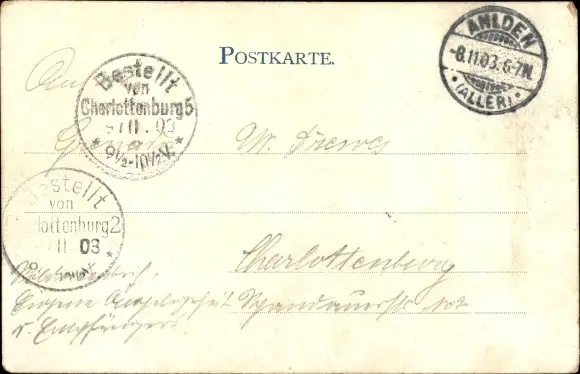 POSTKARTE.
AHLDEN
-8.11.03.6-7N.
* (ALLER) *
Bestellt
von
Charlottenburg 5
9/11.03
* 9½-10½V. *
An
W. Drewes
Bestellt
von
Charlottenburg 2
11 03
Charlottenburg
Spandauerstr. No 2
v. Empfänger